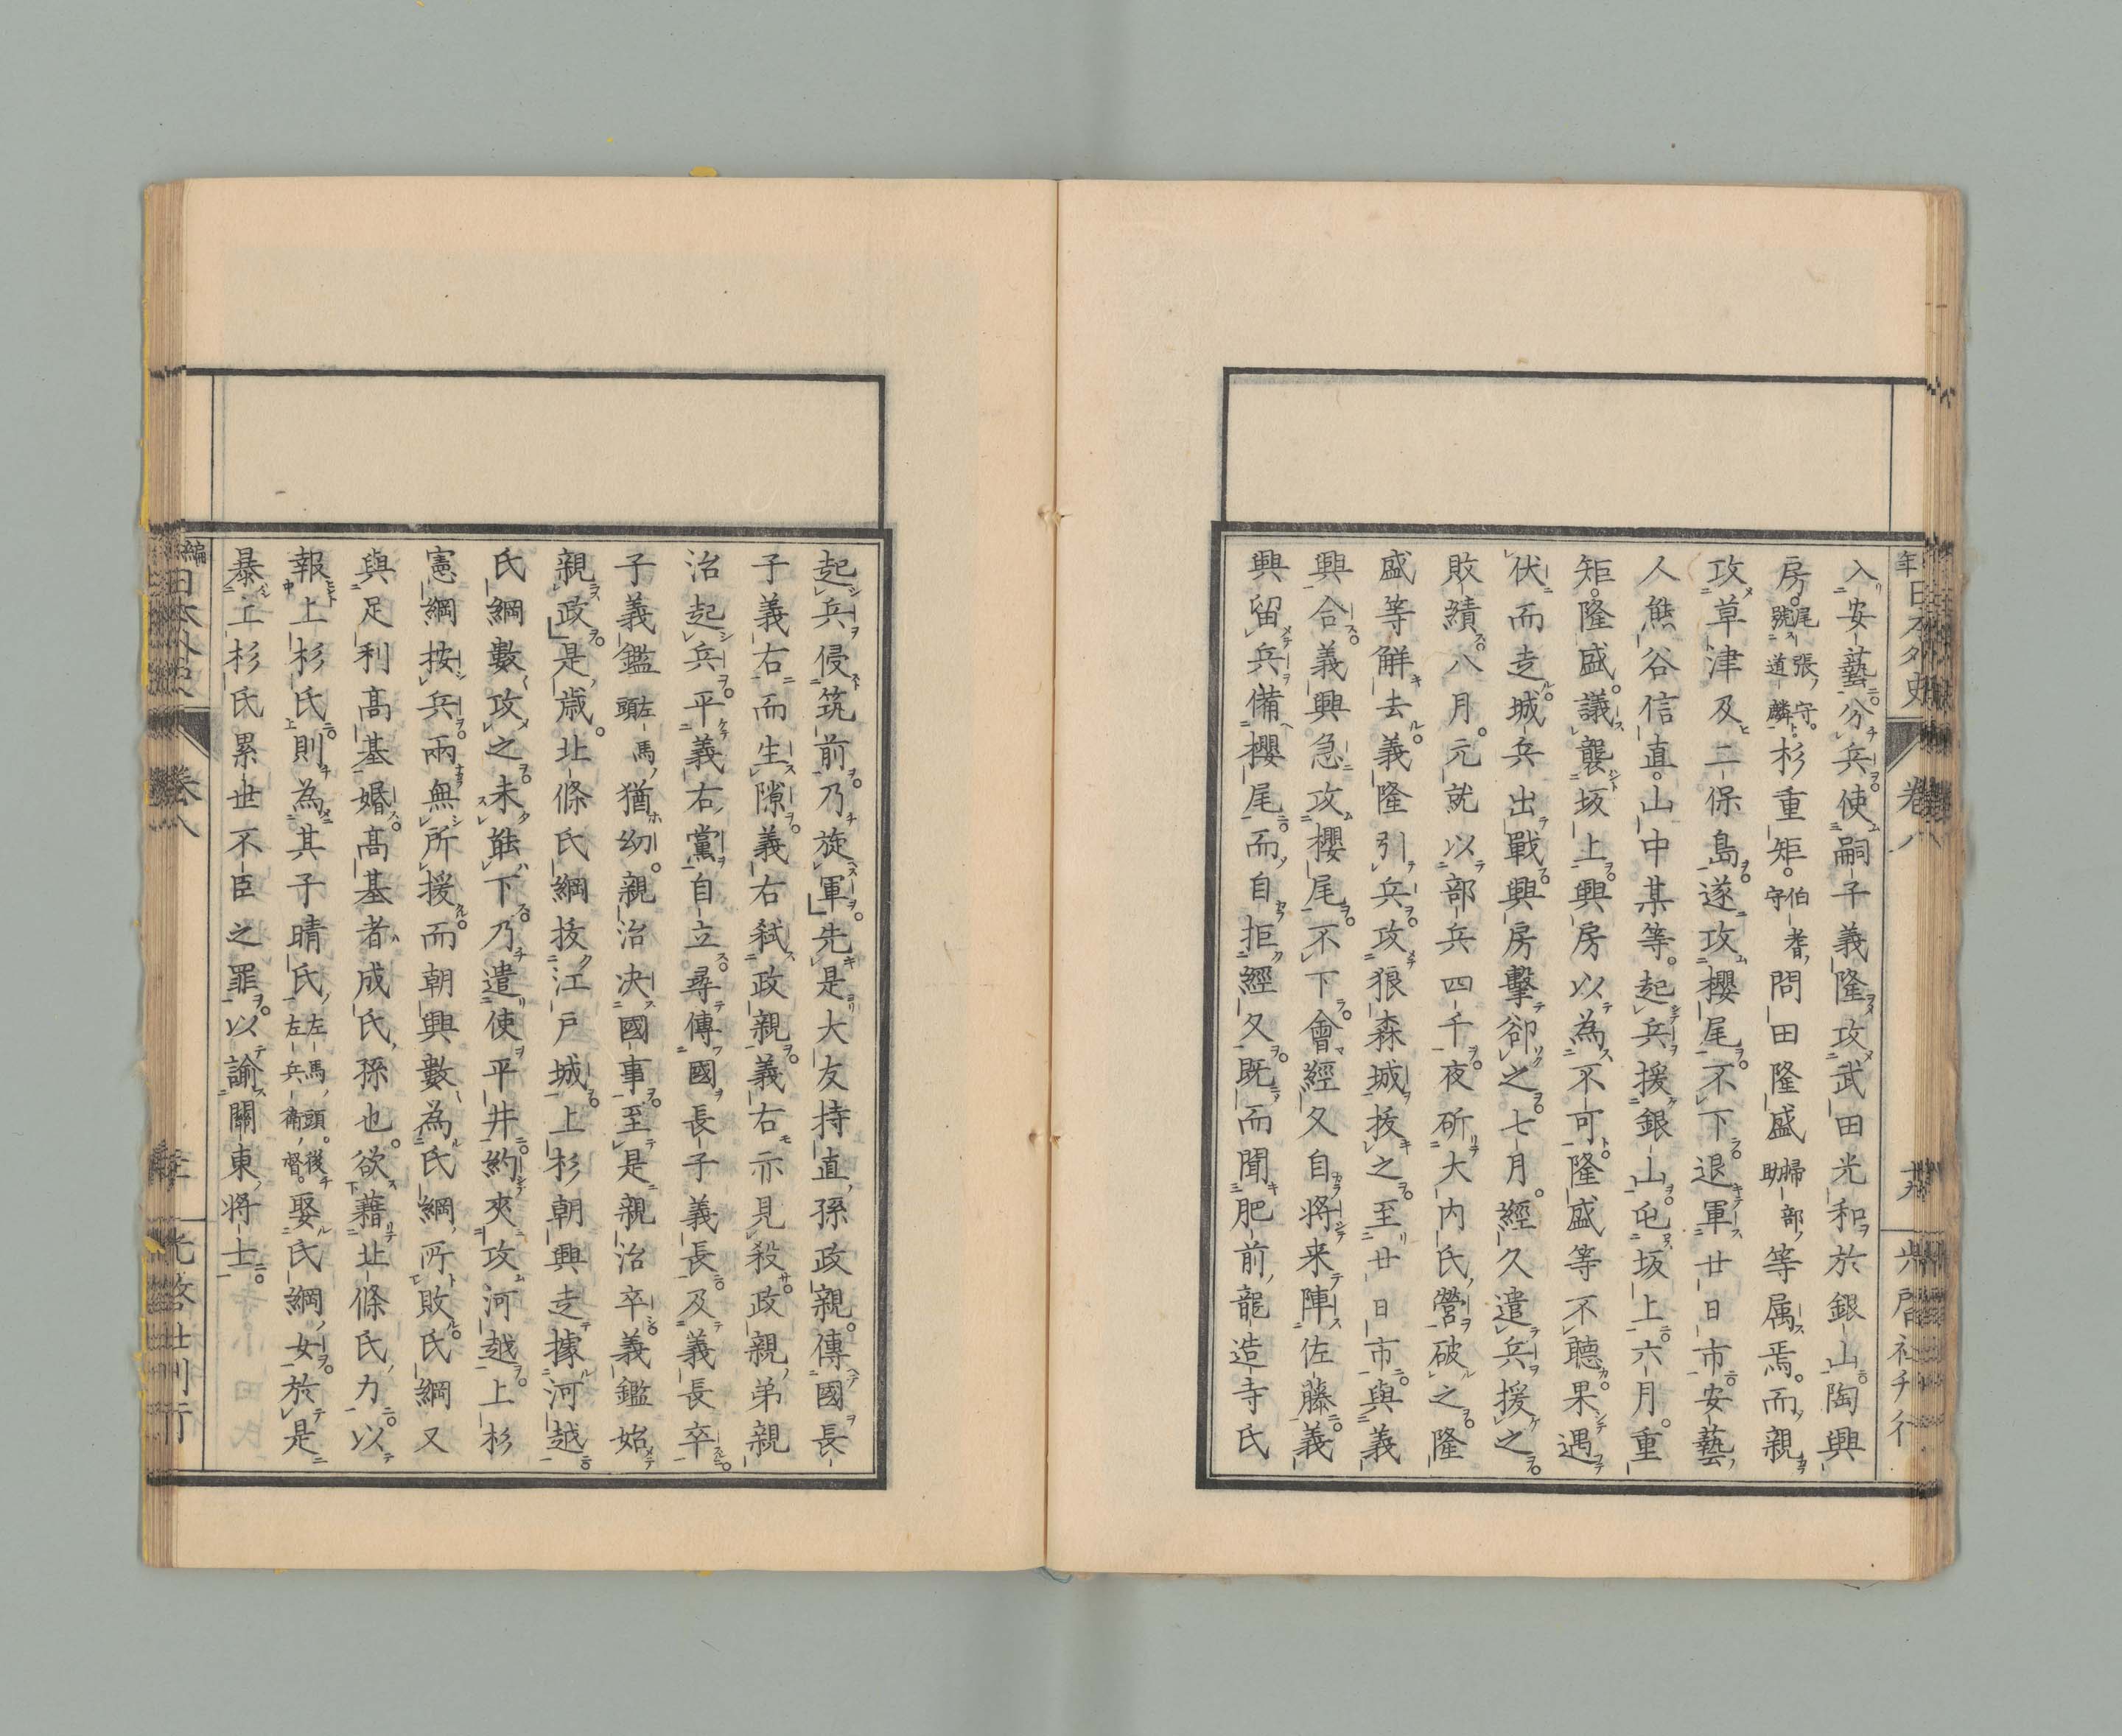 入安藝。分兵。使嗣子義隆攻武田光和於銀山。陶興
房。尾張守。號道麟。杉重矩。伯耆守。問田隆盛掃部助等属焉。而親
攻草津及二保島。遂攻櫻尾。不下。退軍廿日市。安藝
人熊谷信直。山中某等。起兵援銀山。屯坂上。六月。重
矩。隆盛。議襲坂上。興房以為不可。隆盛等不聽。果遇
伏而走。城兵出戰。興房擊卻之。七月。經久遣兵援之。
敗績。八月。元就以部兵四千。夜斫大內氏營破之。隆
盛等解去。義隆引兵。攻狼森城。拔之。至廿日市。與義
興合。義興急攻櫻尾。不下。會經久自將来陣佐藤。義
興留兵備櫻尾。而自拒經久。既而聞肥前龍造寺氏
起兵侵筑前。乃旋軍。先是大友持直孫政親。傳國長
子義右。而生隙。義右弑政親。義右亦見殺。政親弟親
治起兵。平義右黨。自立。尋傳國長子義長。及義長卒。
子義鑑左馬頭猶幼。親治決國事。至是親治卒。義鑑始
親政。是歳。北條氏綱拔江戶城。上杉朝興走據河越。
氏綱數攻之。未能下。乃遣使平井。約夾攻河越。上杉
憲綱按兵。兩無所援。而朝興數為氏綱所敗。氏綱又
與足利高基婚。高基者成氏孫也。欲藉北條氏力。以
報上杉氏。則為其子晴氏。左馬頭。後左兵衛督。娶氏綱女。於是
暴上杉氏累世不臣之罪。以諭關東將士。
日本外史 卷八